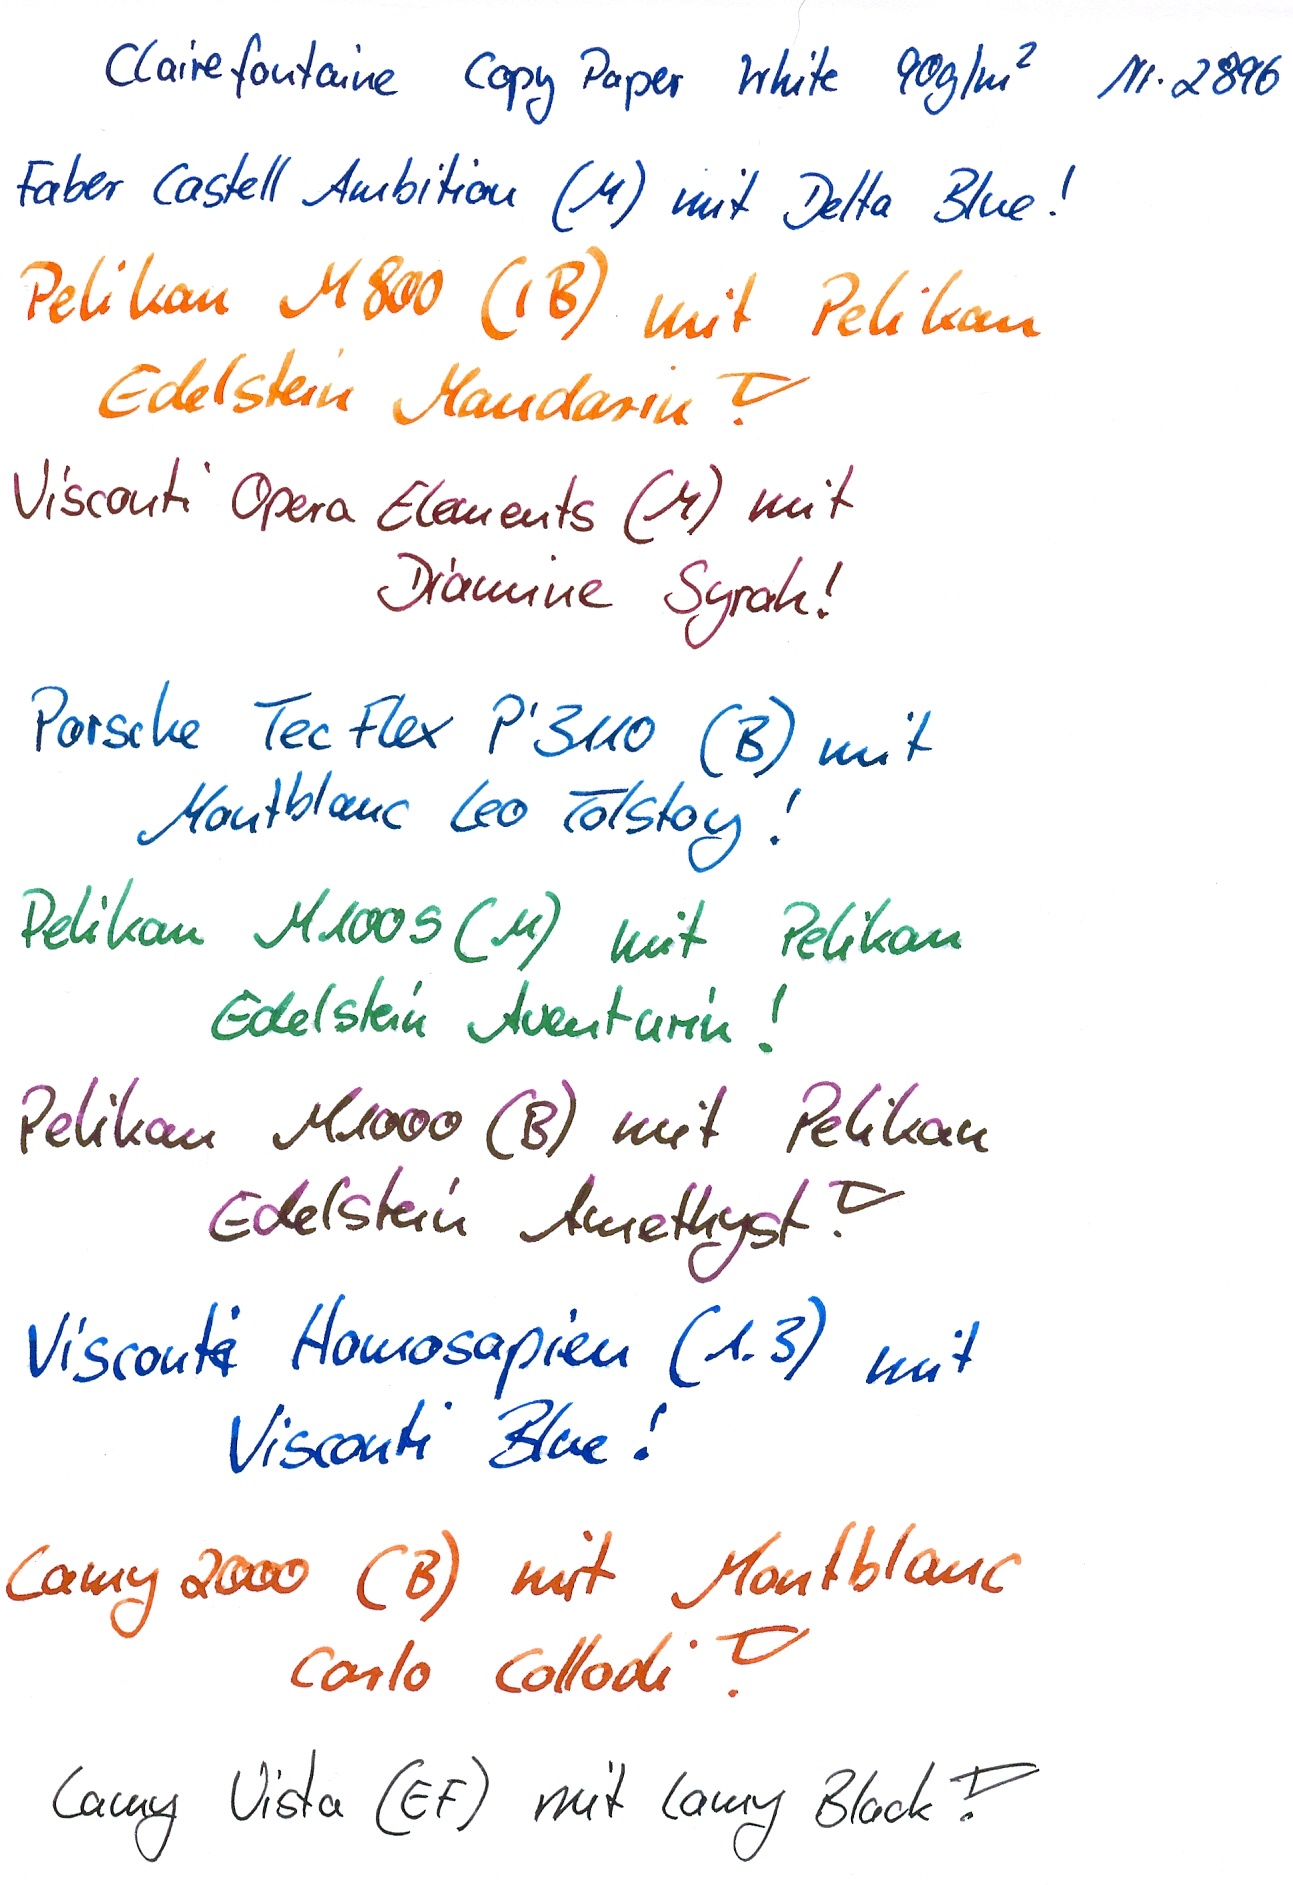 Clairefontaine Copy Paper White 90g/m² Nr. 2896
Faber Castell Ambition (M) mit Delta Blue!
Pelikan M800 (IB) mit Pelikan
Edelstein Mandarin!
Visconti Opera Elements (M) mit
Diamine Syrah!
Porsche Tec Flex P'3110 (B) mit
Montblanc Leo Tolstoy!
Pelikan M1005 (M) mit Pelikan
Edelstein Aventurin!
Pelikan M1000 (B) mit Pelikan
Edelstein Amethyst!
Visconti Homosapien (1.3) mit
Visconti Blue!
Lamy 2000 (B) mit Montblanc
Carlo Collodi!
Lamy Vista (EF) mit Lamy Black!